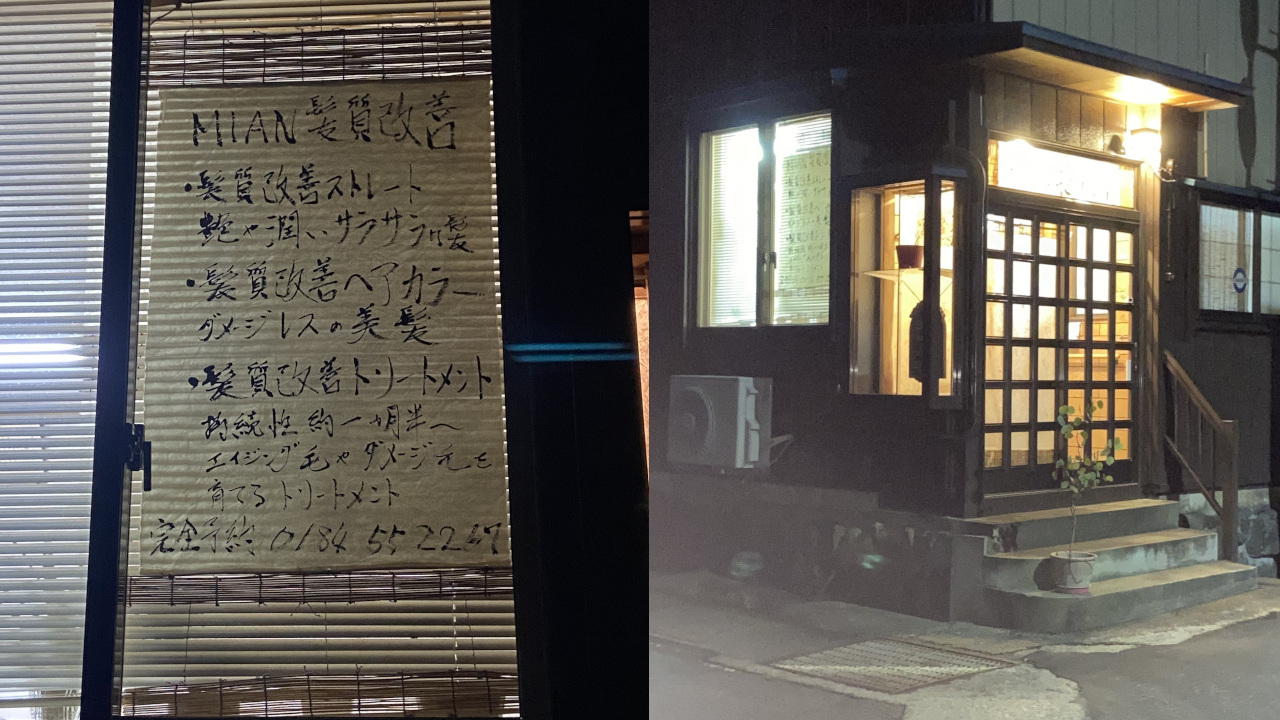 MIAN髪質改善
・髪質改善ストレート
艶や潤いサラサラな髪
・髪質改善ヘアカラー
ダメージレスの美髪
・髪質改善トリートメント
持続性 約一ヵ月半〜
エイジング毛やダメージ毛を
育てるトリートメント
完全予約 0184 55 2267